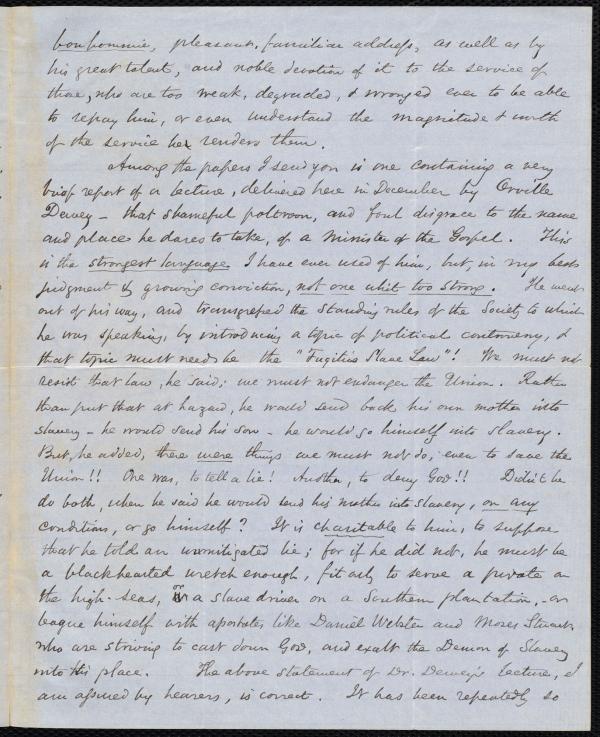 bonhommie, pleasant, familiar address, as well as by
his great talent, and noble devotion of it to the service of
those, who are too weak, degraded, & wronged ever to be able
to repay him, or even understand the magnitude & worth
of the service he renders them.
Among the papers I send you is one containing a very
brief report of a lecture, delivered here in December by Orville
Dewey – that shameful poltroon, and foul disgrace to the name
and place he dares to take, of a Minister of the Gospel. This
is the strongest language I have ever used of him, but, in my best
judgment & growing conviction, not one whit too strong. He went
out of his way, and transgressed the standing rules of the Society to which
he was speaking, by introducing a topic of political controversy, &
that topic must needs be the "Fugitive Slave Law"! We must not
resist that law, he said; we must not endanger the Union. Rather
than put that at hazard, he would send back his own mother into
slavery – he would send his son – he would go himself into slavery.
But, he added, there were things we must not do, even to save the
Union!! One was, to tell a lie! Another, to deny God!! Didn't he
do both, when he said he would send his mother into slavery, on any
condition, or go himself? It is charitable to him, to suppose
that he told an unmitigated lie; for if he did not, he must be
a blackhearted wretch enough, fit only to serve a pirate on
the high-seas, or a slave driver on a Southern plantation, – or
league himself with apostates, like Daniel Webster and Moses Stuart
who are striving to cast down God, and exalt the Demon of Slavery
into His place. The above statement of Dr. Dewey's lecture, I
am assured by hearers, is correct. It has been repeatedly so